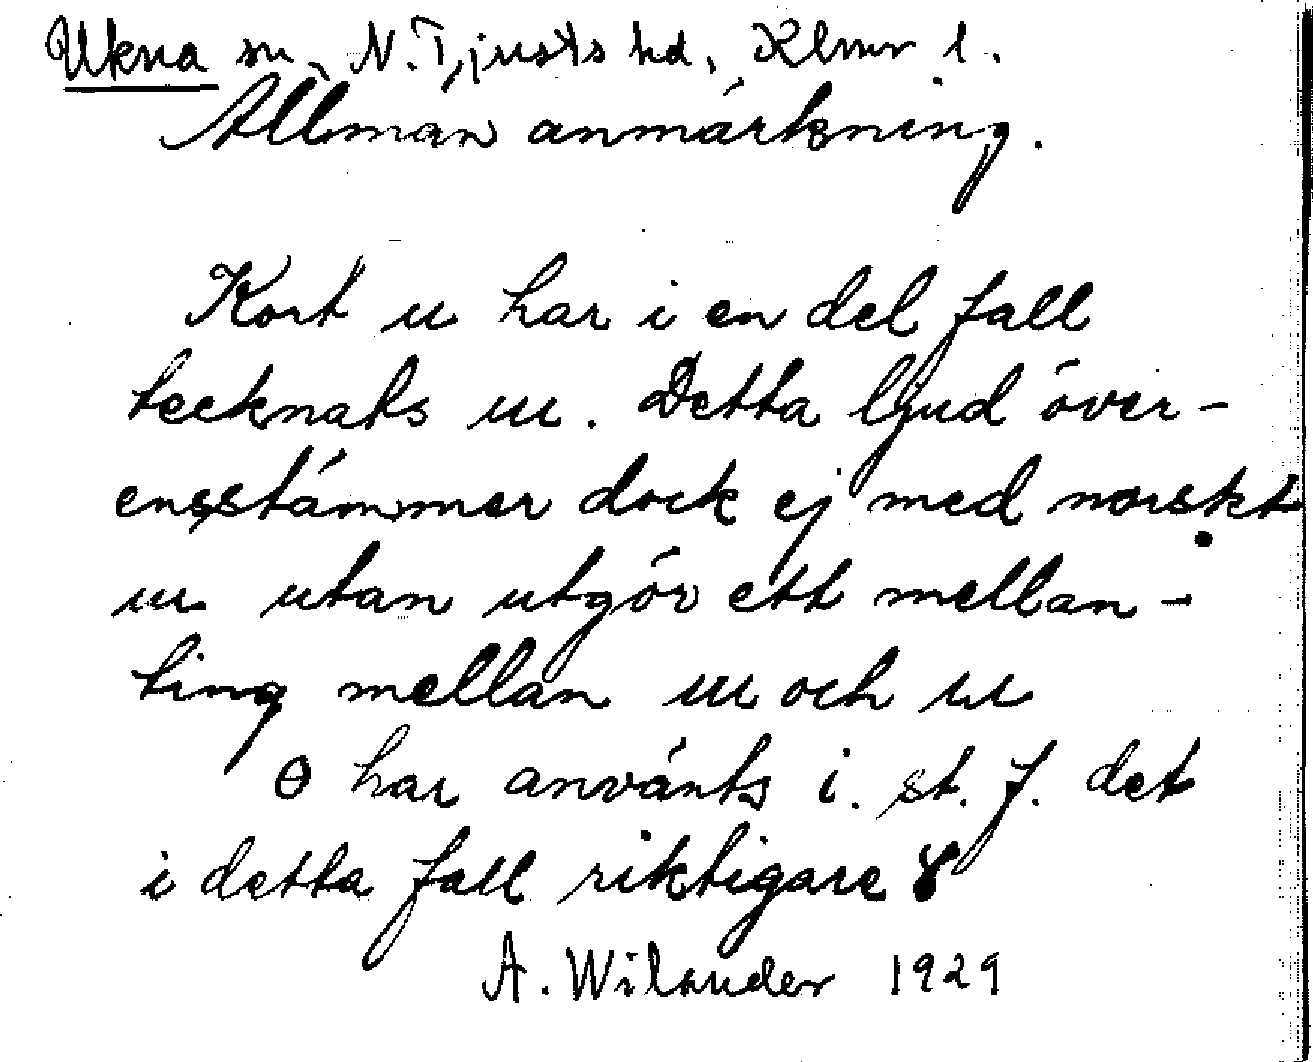 Ukna sn, N. Tjusts hd, Klmr l.
Allmän anmärkning.
Kort u har i en del fall
tecknats ɯ. Detta ljud över-
ensstämmer dock ej med norskt
ɯ utan utgör ett mellan-
ting mellan ɯ och u
ɵ har använts i. st. f. det
i detta fall riktigare
A. Wilander 1929